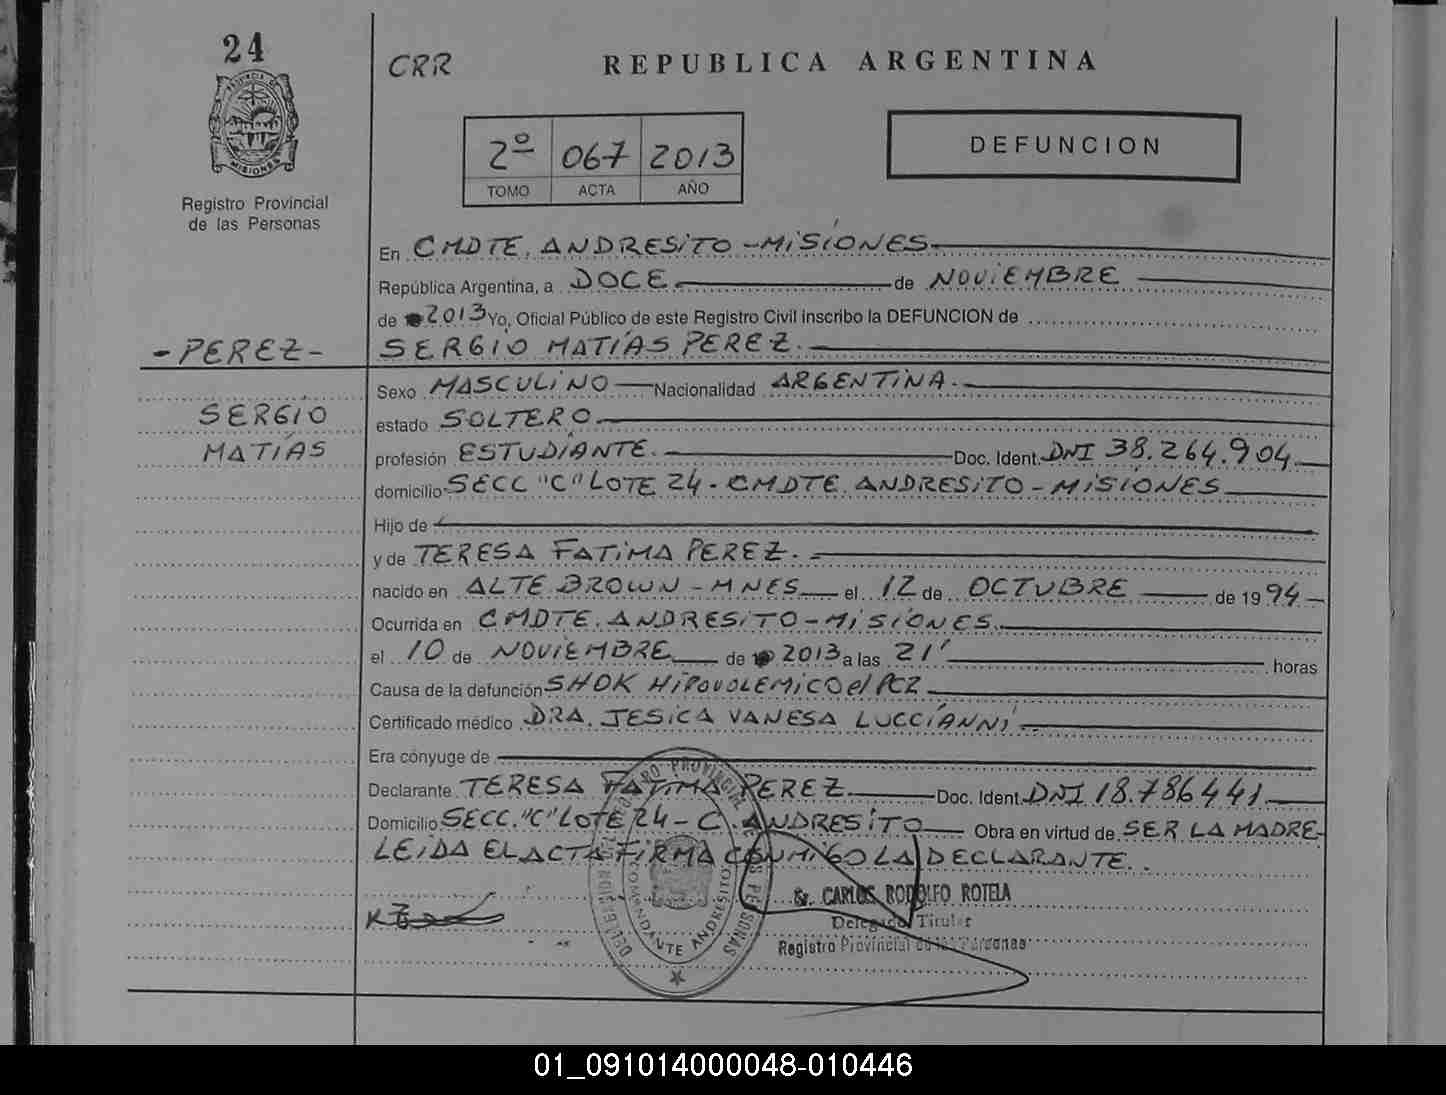 24
CRR
REPUBLICA ARGENTINA
PROVINCIA DE
MISIONES
2º 067 2013
TOMO ACTA AÑO
DEFUNCION
Registro Provincial
de las Personas
En CMDTE. ANDRESITO - MISIONES
República Argentina, a DOCE de NOVIEMBRE
de 2013 Yo, Oficial Público de este Registro Civil inscribo la DEFUNCION de
- PEREZ -
SERGIO MATÍAS PEREZ.
Sexo MASCULINO Nacionalidad ARGENTINA.
SERGIO
estado SOLTERO
MATÍAS
profesión ESTUDIANTE. Doc. Ident. DNI 38.264.904
domicilio SECC "C" LOTE 24 - CMDTE. ANDRESITO - MISIONES
Hijo de
y de TERESA FATIMA PEREZ.
nacido en ALTE BROWN - MNES el 12 de OCTUBRE de 1994
Ocurrida en CMDTE. ANDRESITO - MISIONES.
el 10 de NOVIEMBRE de 2013 a las 21' horas
Causa de la defunción SHOK HIPOVOLEMICO el PCR
Certificado médico DRA. JESICA VANESA LUCCIANNI
Era cónyuge de
Declarante TERESA FATIMA PEREZ Doc. Ident. DNI 18.786441
Domicilio SECC. "C" LOTE 24 - C. ANDRESITO Obra en virtud de SER LA MADRE-
LEIDA EL ACTA FIRMA CONMIGO LA DECLARANTE.
DELEGACION COMANDANTE ANDRESITO
Sr. CARLOS RODOLFO ROTELA
Delegado Titular
Registro Provincial de las Personas
01_091014000048-010446